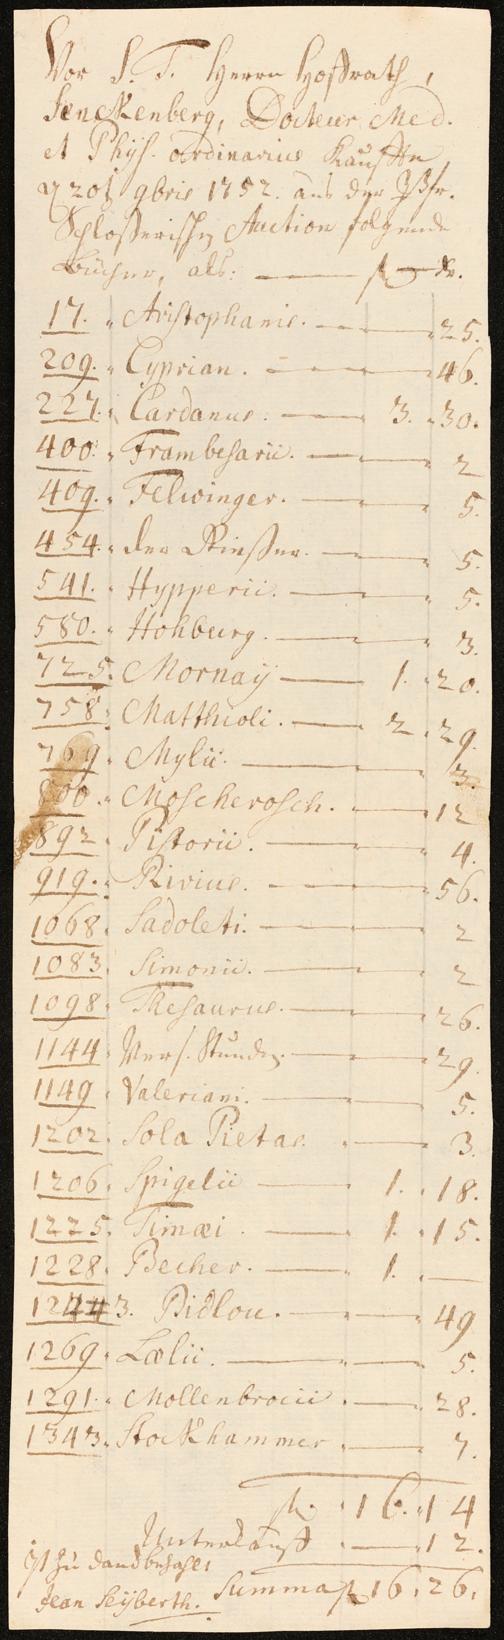 Vor S. T. Herrn Hoffrath,
Senckenberg, Docteur Med.
et Phys. ordinarius Kauffte
d 20t 9bris 1752. aus der
Schloßerischen Auction folgende
Bücher, als: — fl — Xr.
17. Aristophanis. — 25.
209. Cyprian. — 46.
227. Cardanus. — 3. 30.
400. Frambesarii. — 2
409. Felwinger. — 5.
454. der — 5.
541. Hypperii. — 5.
580. Hohburg. — 3.
725. Mornaÿ — 1. 20.
758. Matthioli. — 2. 29.
769. Mylii. — 3.
800. Moscherosch. — 12
892. Pistorii. — 4.
919. Rivius. — 56.
1068. Sadoleti. — 2
1083. Simonii. — 2
1098. Thesaurus. — 26.
1144 Stunden. — 29.
1149 Valeriani. — 5.
1202. Sola Pietas. — 3.
1206. Spigelii — 1. 18.
1225. Timæi. — 1. 15.
1228. Becher. — 1. —
1243. Bidlou. — 49
1269. Lælii. — 5.
1291. Mollenbrocii. — 28.
1343. Stockhammer. — 7.
fl. 16. 14
Unterkauff — 12.
ist zu danck bezahlt
Jean Seÿberth. Summa fl 16. 26.